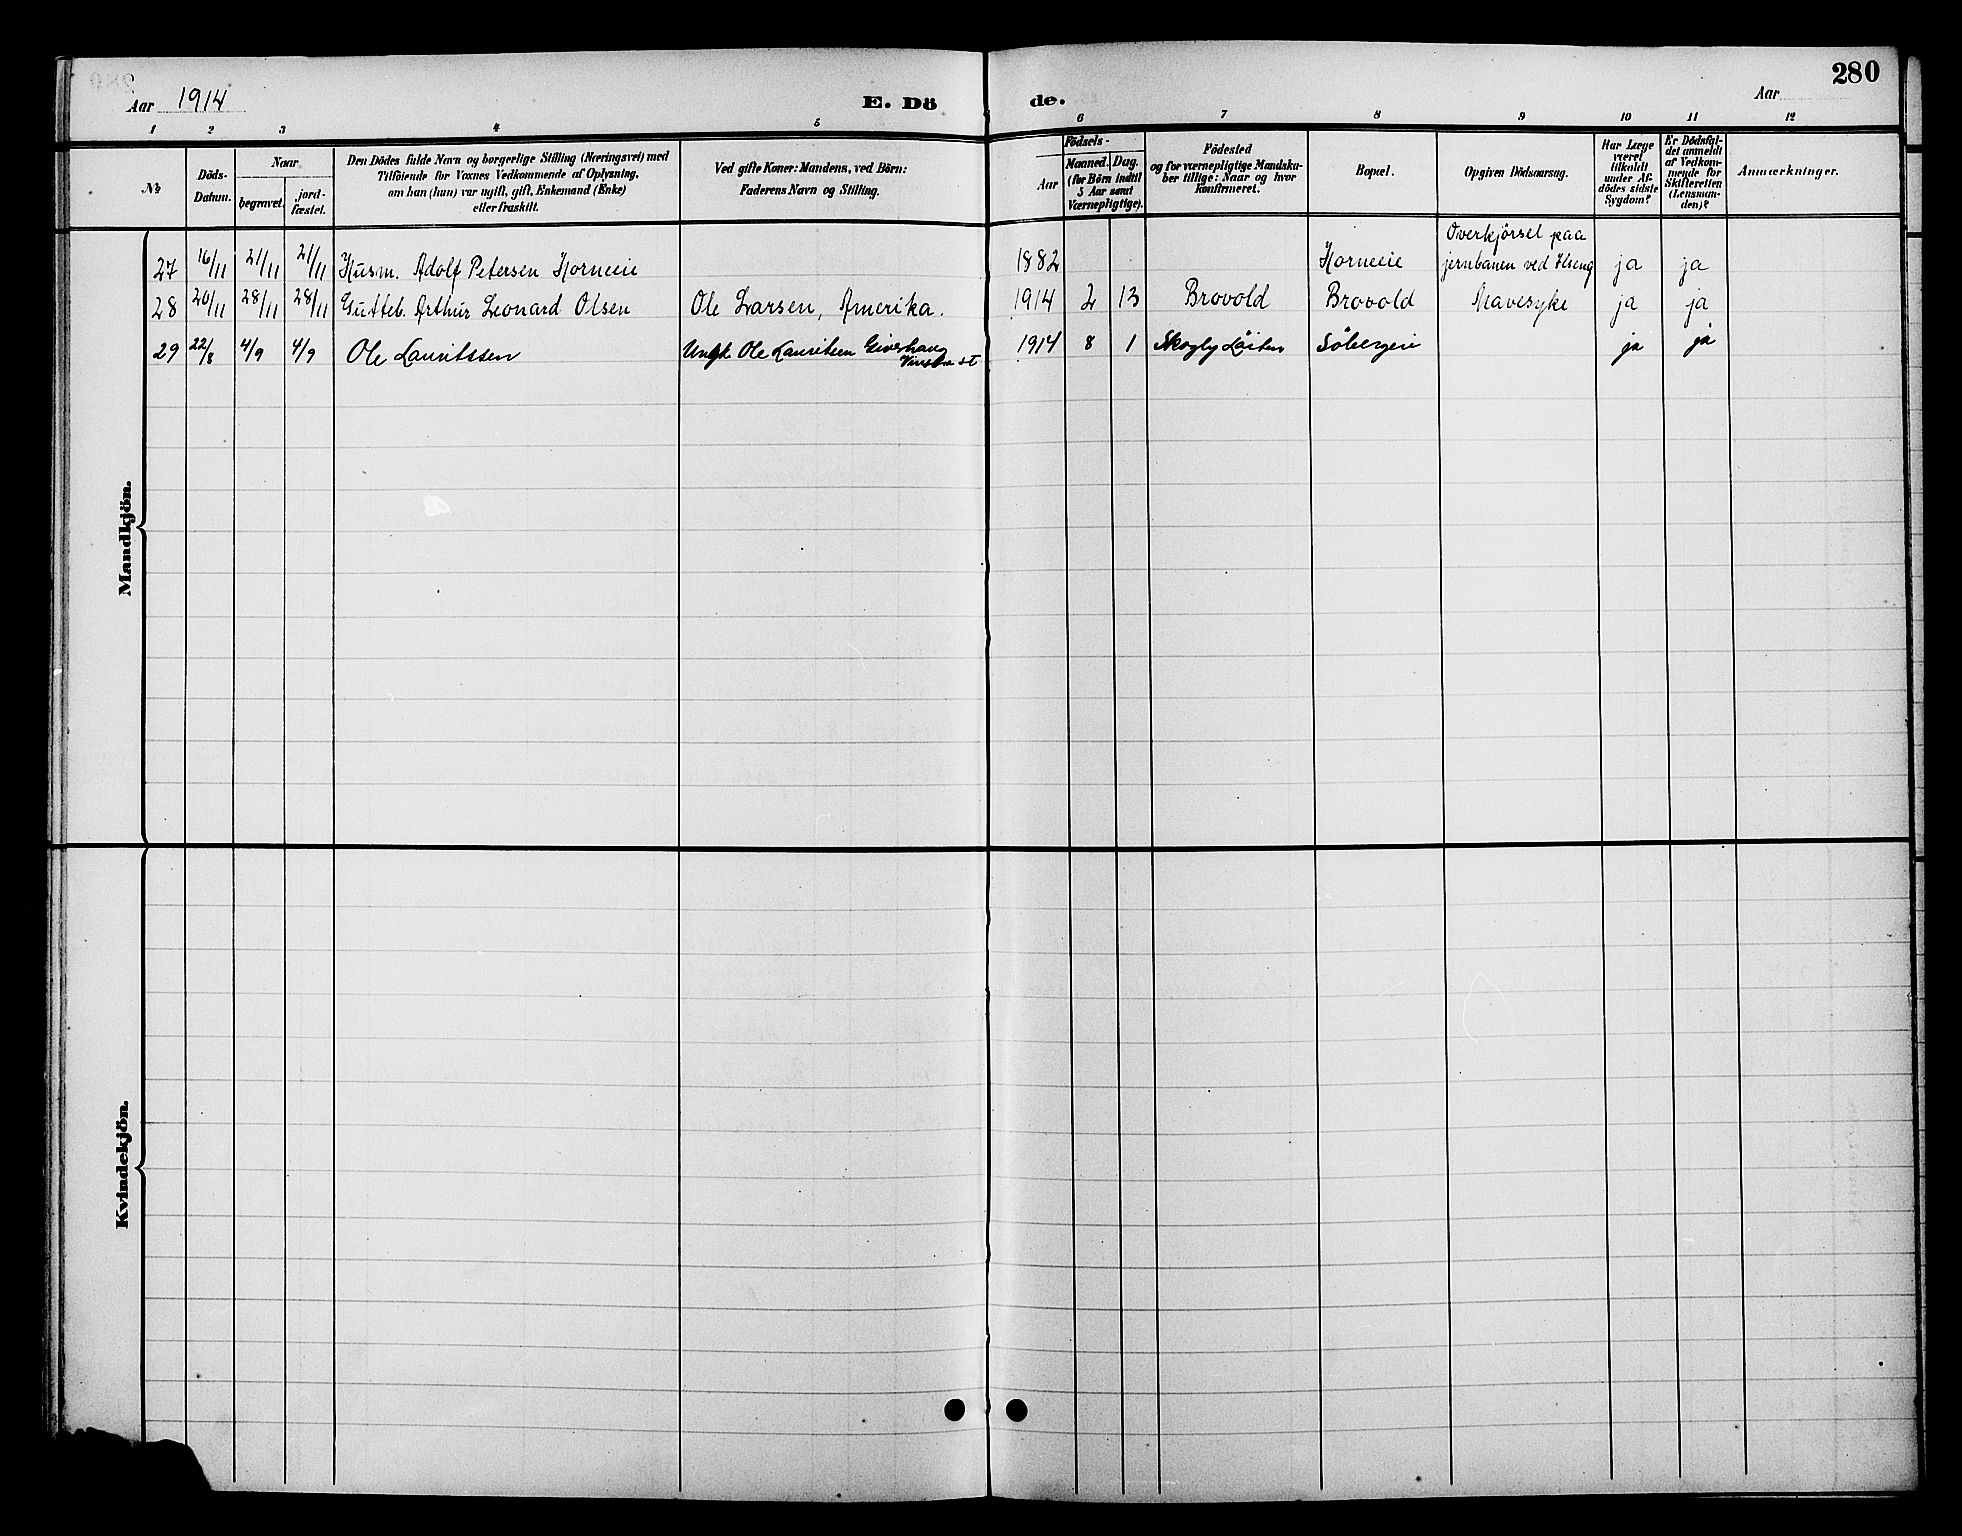 280
Aar 1914
E. Dö
de.
Aar
1 2 3 4 5 6 7 8 9 10 11 12
№
Döds-
Datum.
Naar
begravet.
jord-
fæstet.
Den Dödes fulde Navn og borgerlige Stilling (Næringsvei) med
Tilföiende for Voxnes Vedkommende af Oplysning,
om han (hun) var ugift, gift, Enkemand (Enke)
eller fraskilt.
Ved gifte Koner: Mandens, ved Börn:
Faderens Navn og Stilling.
Födsels-
Aar
Maaned. Dag.
(for Börn indtil
5 Aar samt
Værnepligtige).
Födested
og for værnepligtige Mandska-
ber tillige: Naar og hvor
Konfirmeret.
Bopæl.
Opgiven Dödsaarsag.
Har Læge
været
tilkaldt
under Af-
dödes sidste
Sygdom?
Er Dödsfal-
det anmeldt
af Vedkom-
mende for
Skifteretten
(Lensman-
den)?
Anmærkninger.
Mandkjön.
27 16/11 21/11 21/11 Husm. Adolf Petersen Horneeie 1882 Horneeie Overkjörsel paa
jernbanen ved Ilseng ja ja
28 20/11 28/11 28/11 Gutteb. Arthur Leonard Olsen Ole Larsen, Amerika. 1914 2 13 Brovold Brovold Mavesyke ja ja
29 22/8 4/9 4/9 Ole Lauritssen Ungk Ole Lauritsen 1914 8 1 Skogly Löiten Söbergeie ja ja
Kvindekjön.